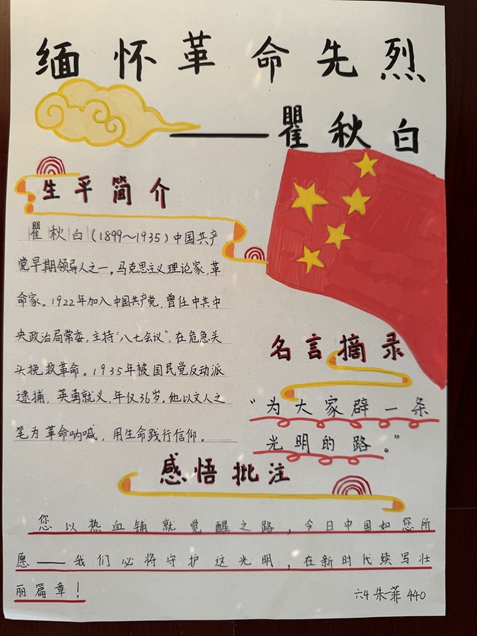 缅怀革命先烈
——瞿秋白
生平简介
瞿秋白(1899~1935)中国共产
党早期领导人之一。马克思主义理论家,革
命家。1922年加入中国共产党,曾任中共中
央政治局常委,主持"八七会议",在危急关
头挽救革命。1935年被国民党反动派
逮捕,英勇就义,年仅36岁。他以文人之
笔为革命呐喊,用生命践行信仰。
名言摘录
"为大家辟一条
光明的路。"
感悟批注
您以热血铺就觉醒之路,今日中国如您所
愿——我们必将守护这光明,在新时代续写壮
丽篇章!
六4 朱菲 440